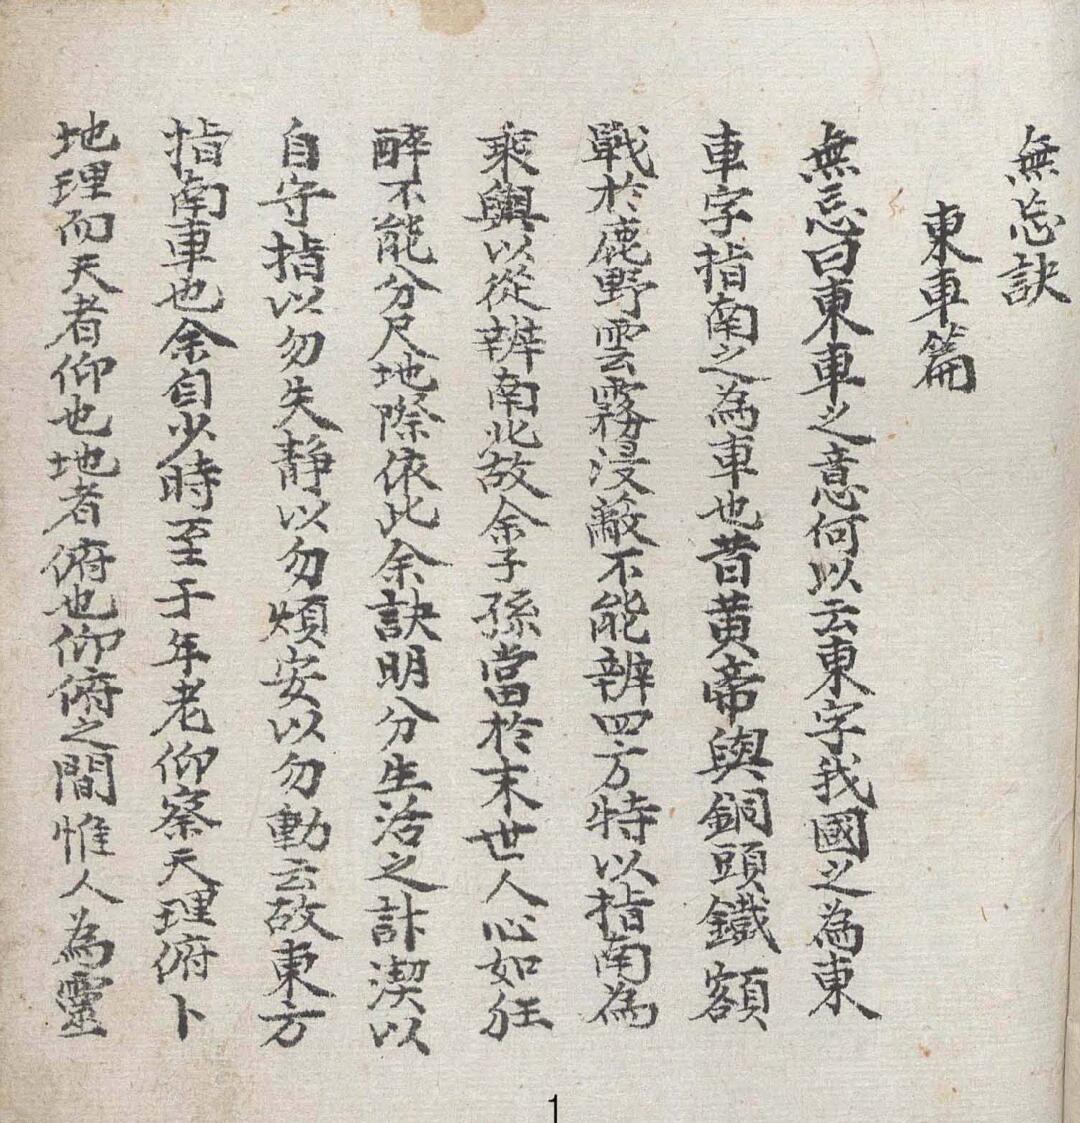 無忘訣
東車篇
無忘曰東車之意何以云東字我國之為東
車字指南之為車也昔黃帝與銅頭鐵額
戰於鹿野雲霧浸蔽不能辨四方特以指南為
乘輿以從辨南北故余子孫當於末世人心如狂
醉不能分尺地際依此余訣明分生活之計深以
自守指以勿失靜以勿煩安以勿動云故東方
指南車也余自少時至于年老仰察天理俯卜
地理而天者仰也地者俯也仰俯之間惟人為靈
1